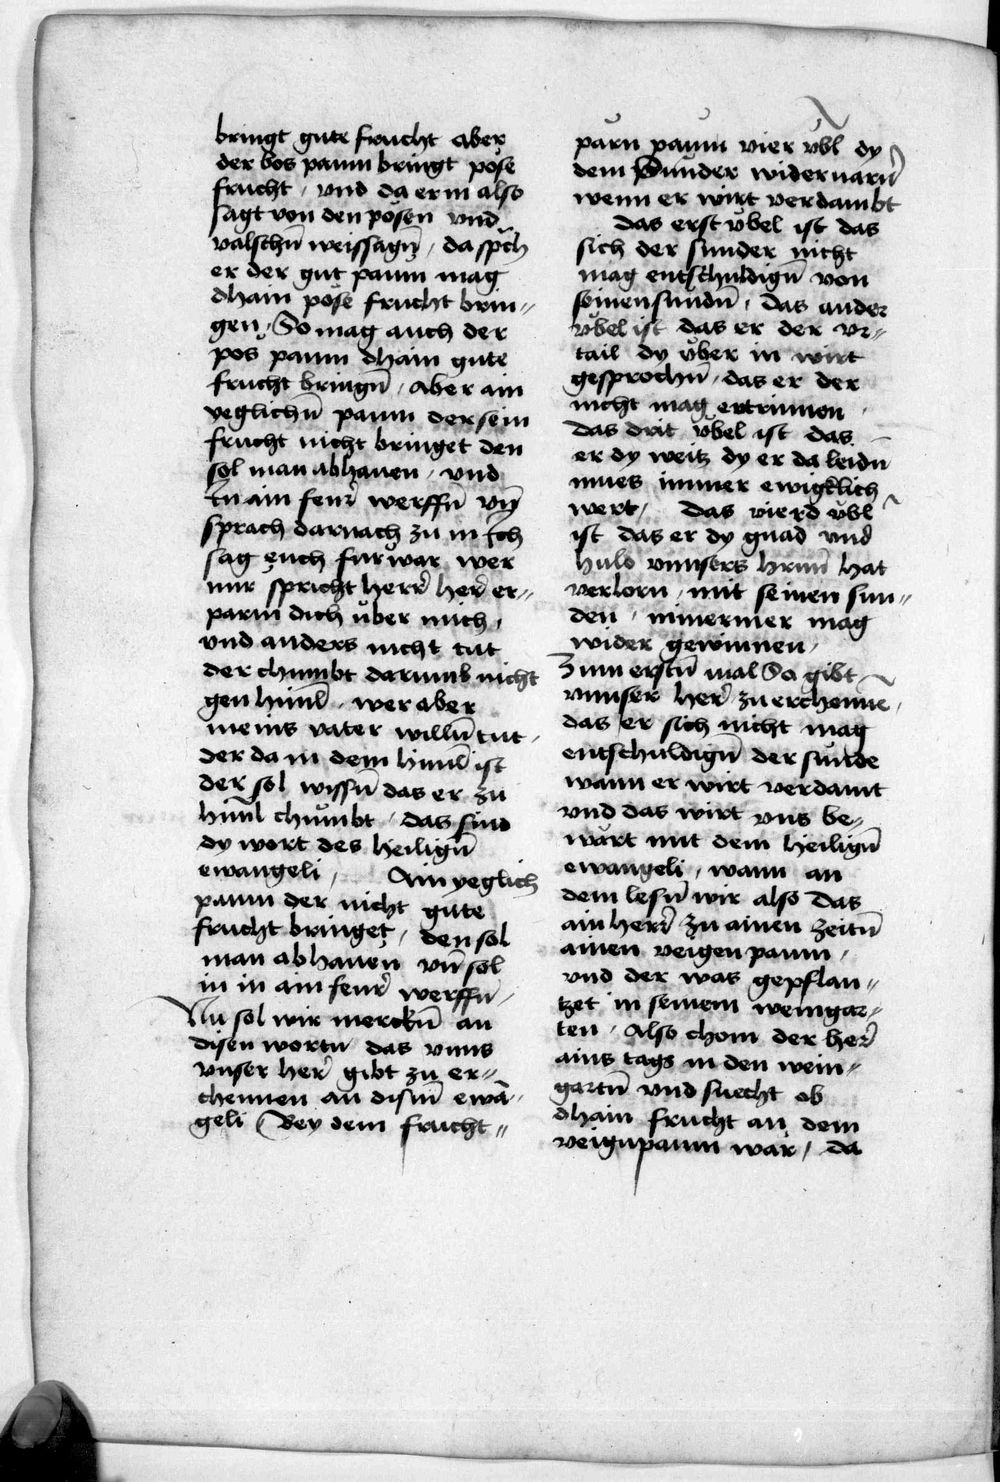 bringt gute frucht aber
der bos paum bringt pöse
frucht / vnd da er in also
sagt von den pösen vnd
valschn̄ weissagn̄ / da sp̄ch
er der gut paum mag
dhain pöse frucht brin〃
gen / So mag auch der
pös paum dhain gute
frucht bringn̄ / aber ain
yeglichn̄ paum der sein
frucht nicht bringet den
sol man abhauen / vnd
In ain feur̄ werffn̄ vn̄
sprach darnach zu in Ich
sag euch fürwar wer
nur spricht herr̄ her̄ er〃
parm dich über mich /
vnd anders nicht tut
der chumbt darumb nicht
gen himl̄ / wer aber
meins vater willn̄ tut /
der da in dem himl̄ ist
der sol wissn̄ das er zu
himl chumbt / das sind
dy wort des heilign̄
ewangeli / Ain yeglich
paum der nicht gute
frucht bringet / den sol
man abhauen vn̄ sol
in in ain feur̄ werffn̄ /
Nu sol wir merckn̄ an
disen wortn̄ das vnns
vnser her̄ gibt zu er〃
chennen an dism̄ ewā〃
geli / Bey dem frucht〃
parn paum vier übl dy
dem Sünder widervarn̄
wenn er wirt verdambt
das erst übel ist das
sich der sunder nicht
mag entschuldign̄ von
seinen sundn̄ / das ander
übel ist das er der vr〃
tail dy über in wirt
gesprochn̄ / das er der
nicht mag entrinnen /
das drit übel ist das
er dy weitz dy er da leidn̄
mues immer ewigklich
wert / das vierd übl
ist das er dy gnad vnd
huld vnnsers hrnn̄ hat
verlorn / mit seinen sun〃
den / nimermer mag
wider gewinnen /
Zum erstn̄ mal So gibt
vnnser her̄ zu erchenne /
das er sich nicht mag
entschuldign̄ der sunde
wann er wirt verdamt
vnd das wirt vns be〃
wärt mit dem heilign̄
ewangeli / wann an
dem lesn̄ wir also Das
ain herr̄ zu ainen zeitn̄
ainen veigen paum /
vnd der was gepflan〃
tzet in seinem weingar〃
ten / Also chom der her̄
ains tags in den wein〃
gartn̄ vnd suecht ob
dhain frucht an dem
veignpaum wär / da